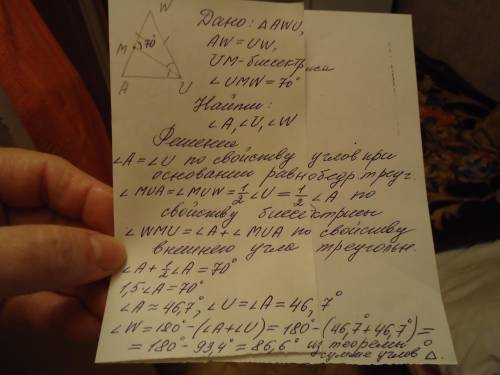 W
M
70°
A
U
Дано: △AWU,
AW = UW,
UM - биссектриса
∠UMW = 70°
Найти:
∠A, ∠U, ∠W
Решение
∠A = ∠U по свойству углов при
основании равнобедр треуг.
∠MUA = ∠MUW = 1/2 ∠U = 1/2 ∠A по
свойству биссектрисы
∠WMU = ∠A + ∠MUA по свойству
внешнего угла треугольн.
∠A + 1/2 ∠A = 70°
1,5∠A = 70°
∠A ≈ 46,7°, ∠U = ∠A = 46,7°
∠W = 180° - (∠A + ∠U) = 180° - (46,7° + 46,7°) =
= 180° - 93,4° = 86,6° из теоремы о
сумме углов △.